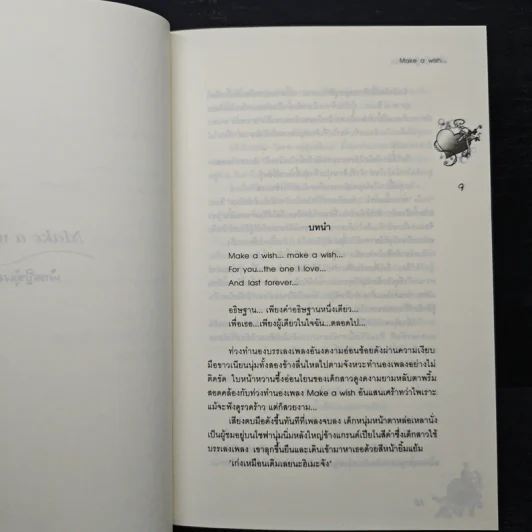 Make a wish...
๑
บทนำ
Make a wish... make a wish...
For you...the one I love...
And last forever...
อธิษฐาน... เพียงคำอธิษฐานหนึ่งเดียว...
เพื่อเธอ...เพียงผู้เดียวในใจฉัน...ตลอดไป...
ท่วงทำนองบรรเลงเพลงอันงดงามอ่อนช้อยดังผ่านความเงียบ
มือขาวเนียนนุ่มทั้งสองข้างลื่นไหลไปตามจังหวะทำนองเพลงอย่างไม่
ติดขัด ใบหน้าหวานซึ้งอ่อนโยนของเด็กสาวดูงดงามยามหลับตาพริ้ม
สอดคล้องกับท่วงทำนองเพลง Make a wish อันแสนเศร้าทว่าไพเราะ
แม้จะฟังดูรวดร้าว แต่ก็สวยงาม...
เสียงตบมือดังขึ้นทันทีที่เพลงจบลง เด็กหนุ่มหน้าตาหล่อเหลานั่ง
เป็นผู้ชมอยู่บนโซฟานุ่มนิ่มหลังใหญ่ข้างแกรนด์เปียโนสีดำซึ่งเด็กสาวใช้
บรรเลงเพลง เขาลุกขึ้นยืนและเดินเข้ามาหาเธอด้วยสีหน้ายิ้มแย้ม
'เก่งเหมือนเดิมเลยนะฮิเมะจัง'